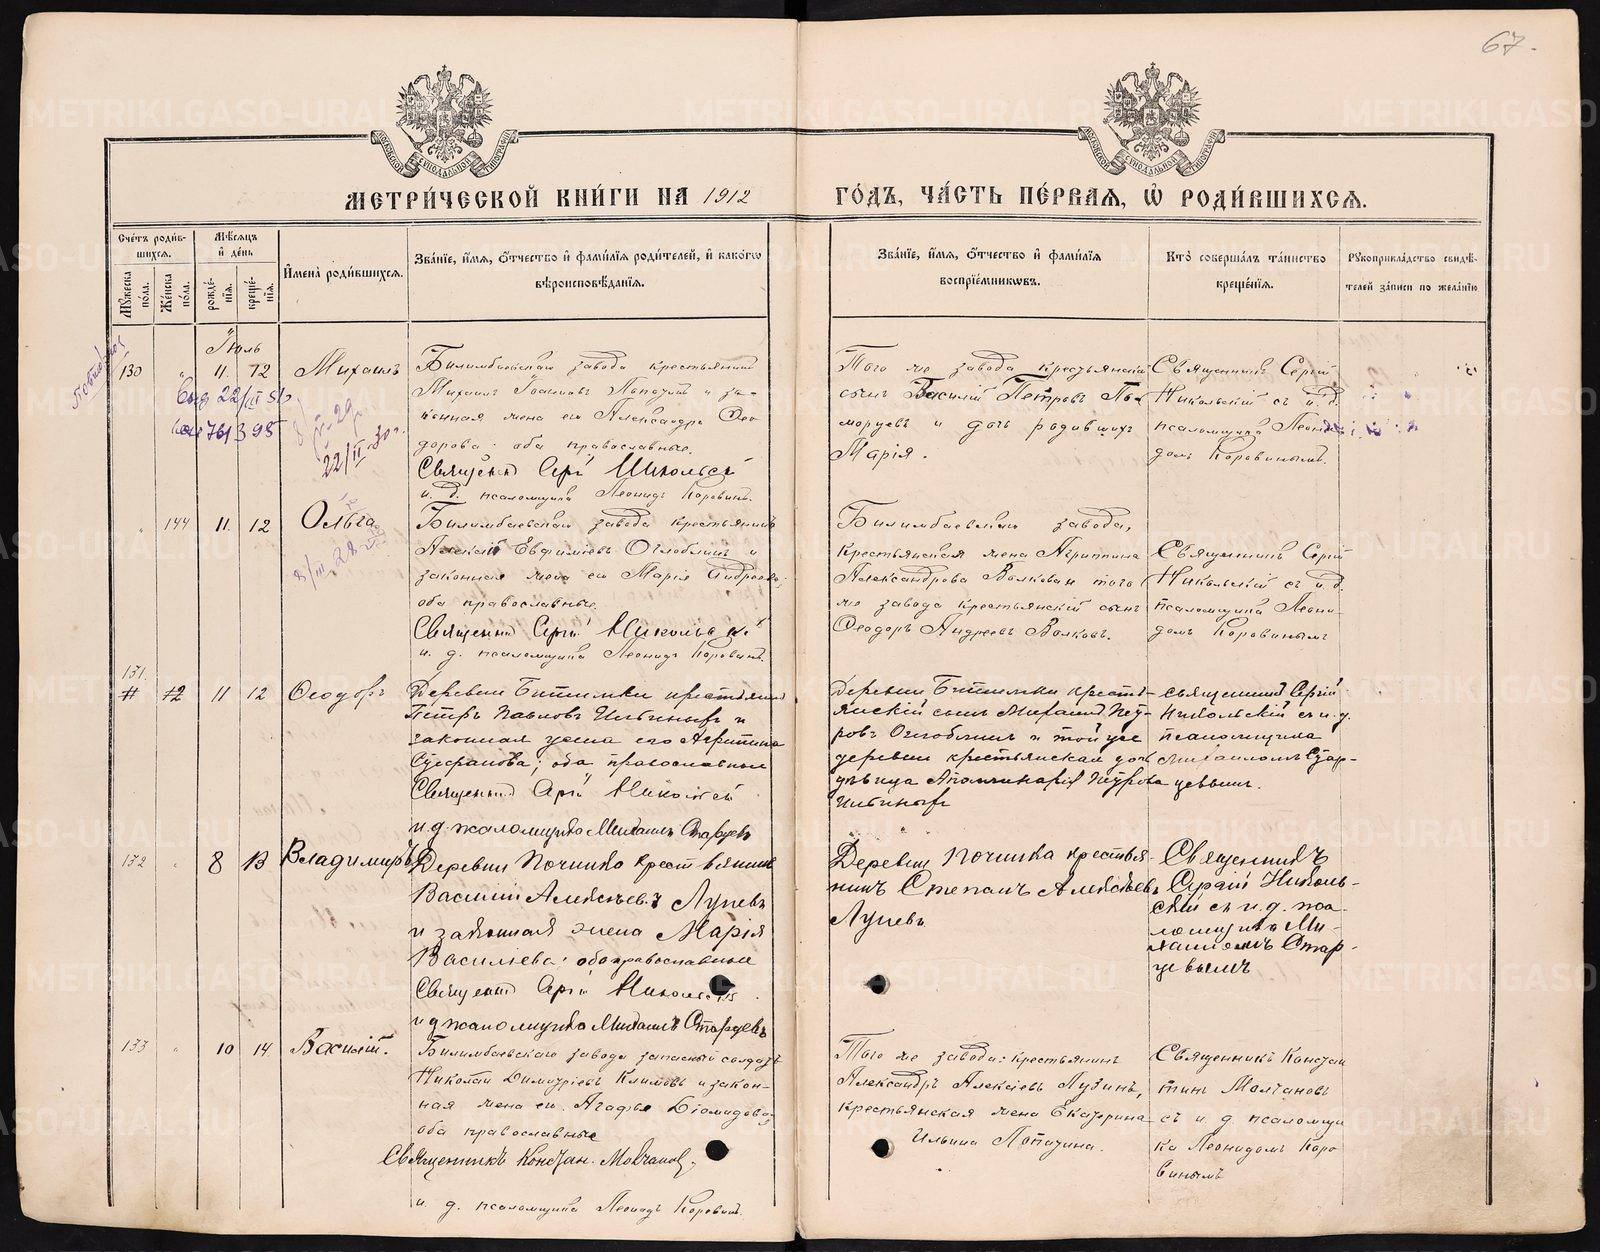 67.
МЕТРИ́ЧЕСКОЙ КНИ́ГИ НА 1912 ГО́ДЪ, ЧА́СТЬ ПЕ́РВАЯ, Ѡ҆ РОДИ́ВШИХСЯ.
Сче́тъ роди́в-
шихся.
Мꙋ́жеска по́ла.
Же́нска по́ла.
Мѣ́сяцъ и҆ де́нь
рожде́-нїя.
креще́-нїя.
И҆мена̀ роди́вшихся.
Зва́нїе, и҆́мя, ѻ҆́тчество и҆ фами́лїя роди́телей, и҆ како́гѡ
вѣроисповѣ́данїя.
Зва́нїе, и҆́мя, ѻ҆́тчество и҆ фами́лїя
воспрїе́мникѡвъ.
Кто̀ соверша́лъ та́инство
креще́нїя.
Рꙋкоприкла́дство свидѣ́-
телей за́писи по жела́нїю
Іюль
130 " 11. 12 Михаилъ
22/II 30 г.
Билимбаевскаго завода крестьянинъ
Михаилъ Іоанновъ и за-
конная жена его Александра Ѳео-
дорова: оба православные.
Священ Сергій Никольскій
и. д. псаломщика Леонидъ Коровинъ.
Того же завода крестьянскій
сынъ Василій Петровъ По-
морцевъ и дочь родившихъ
Марія.
Священникъ Сергій
Никольскій съ и. д.
псаломщика Леони-
домъ Коровинымъ.
" 144 11. 12 Ольга
Билимбаевскаго завода крестьянинъ
Алексій Евфиміевъ Оглоблинъ и
законная жена его Марія Андреева;
оба православные.
Священ Сергій Никольскій
и. д. псаломщика Леонидъ Коровинъ.
Билимбаевскаго завода,
крестьянская жена Агриппина
Александрова Волкова и того
же завода крестьянскій сынъ
Ѳеодоръ Андреевъ Волковъ.
Священникъ Сергій
Никольскій съ и. д.
псаломщика Леони-
домъ Коровинымъ
131. 11 12 Ѳеодоръ
Деревни Битимки крестьянинъ
Петръ Павловъ и
законная жена его Агрипина
Стефанова; оба православные
Священ Сергій Никольскій
и. д. псаломщика Михаилъ Старцевъ
Деревни Битимки кресть-
янскій сынъ Михаилъ Пет-
ровъ Оглоблинъ и той же
деревни крестьянская дочь
дѣвица Аполлинарія Петрова
священникъ Сергій
Никольскій съ и. д.
псаломщика
Михаиломъ Стар-
цевымъ.
132 " 8 13 Владимиръ
Деревни Починка крестьянинъ
Василій Алексѣевъ Лупевъ
и законная жена Марія
Васильева: оба православные
Священ Сергій Никольскій.
и д псаломщика Михаилъ Старцевъ
Деревни Починка крестья-
нинъ Степанъ Алексѣевъ
Лупевъ
Священникъ
Сергій Николь-
скій съ и. д. пса-
ломщика Ми-
хаиломъ Стар-
цевымъ
133 " 10 14. Василій.
Билимбаевскаго завода запасный солдатъ
Николай Димитріевъ Климовъ и закон-
ная жена его Агафья Діомидова;
оба православные
Священникъ Констан. Молчановъ.
и. д. псаломщика Леонидъ Коровинъ.
Того же завода: крестьянинъ
Александръ Алексіевъ Пузинъ,
крестьянская жена Екатерина
Ильина Лопатина.
Священникъ Констан
тинъ Молчановъ
съ и. д. псаломщи
ка Леонидомъ Коро
винымъ
METRIKI.GASO-URAL.RU